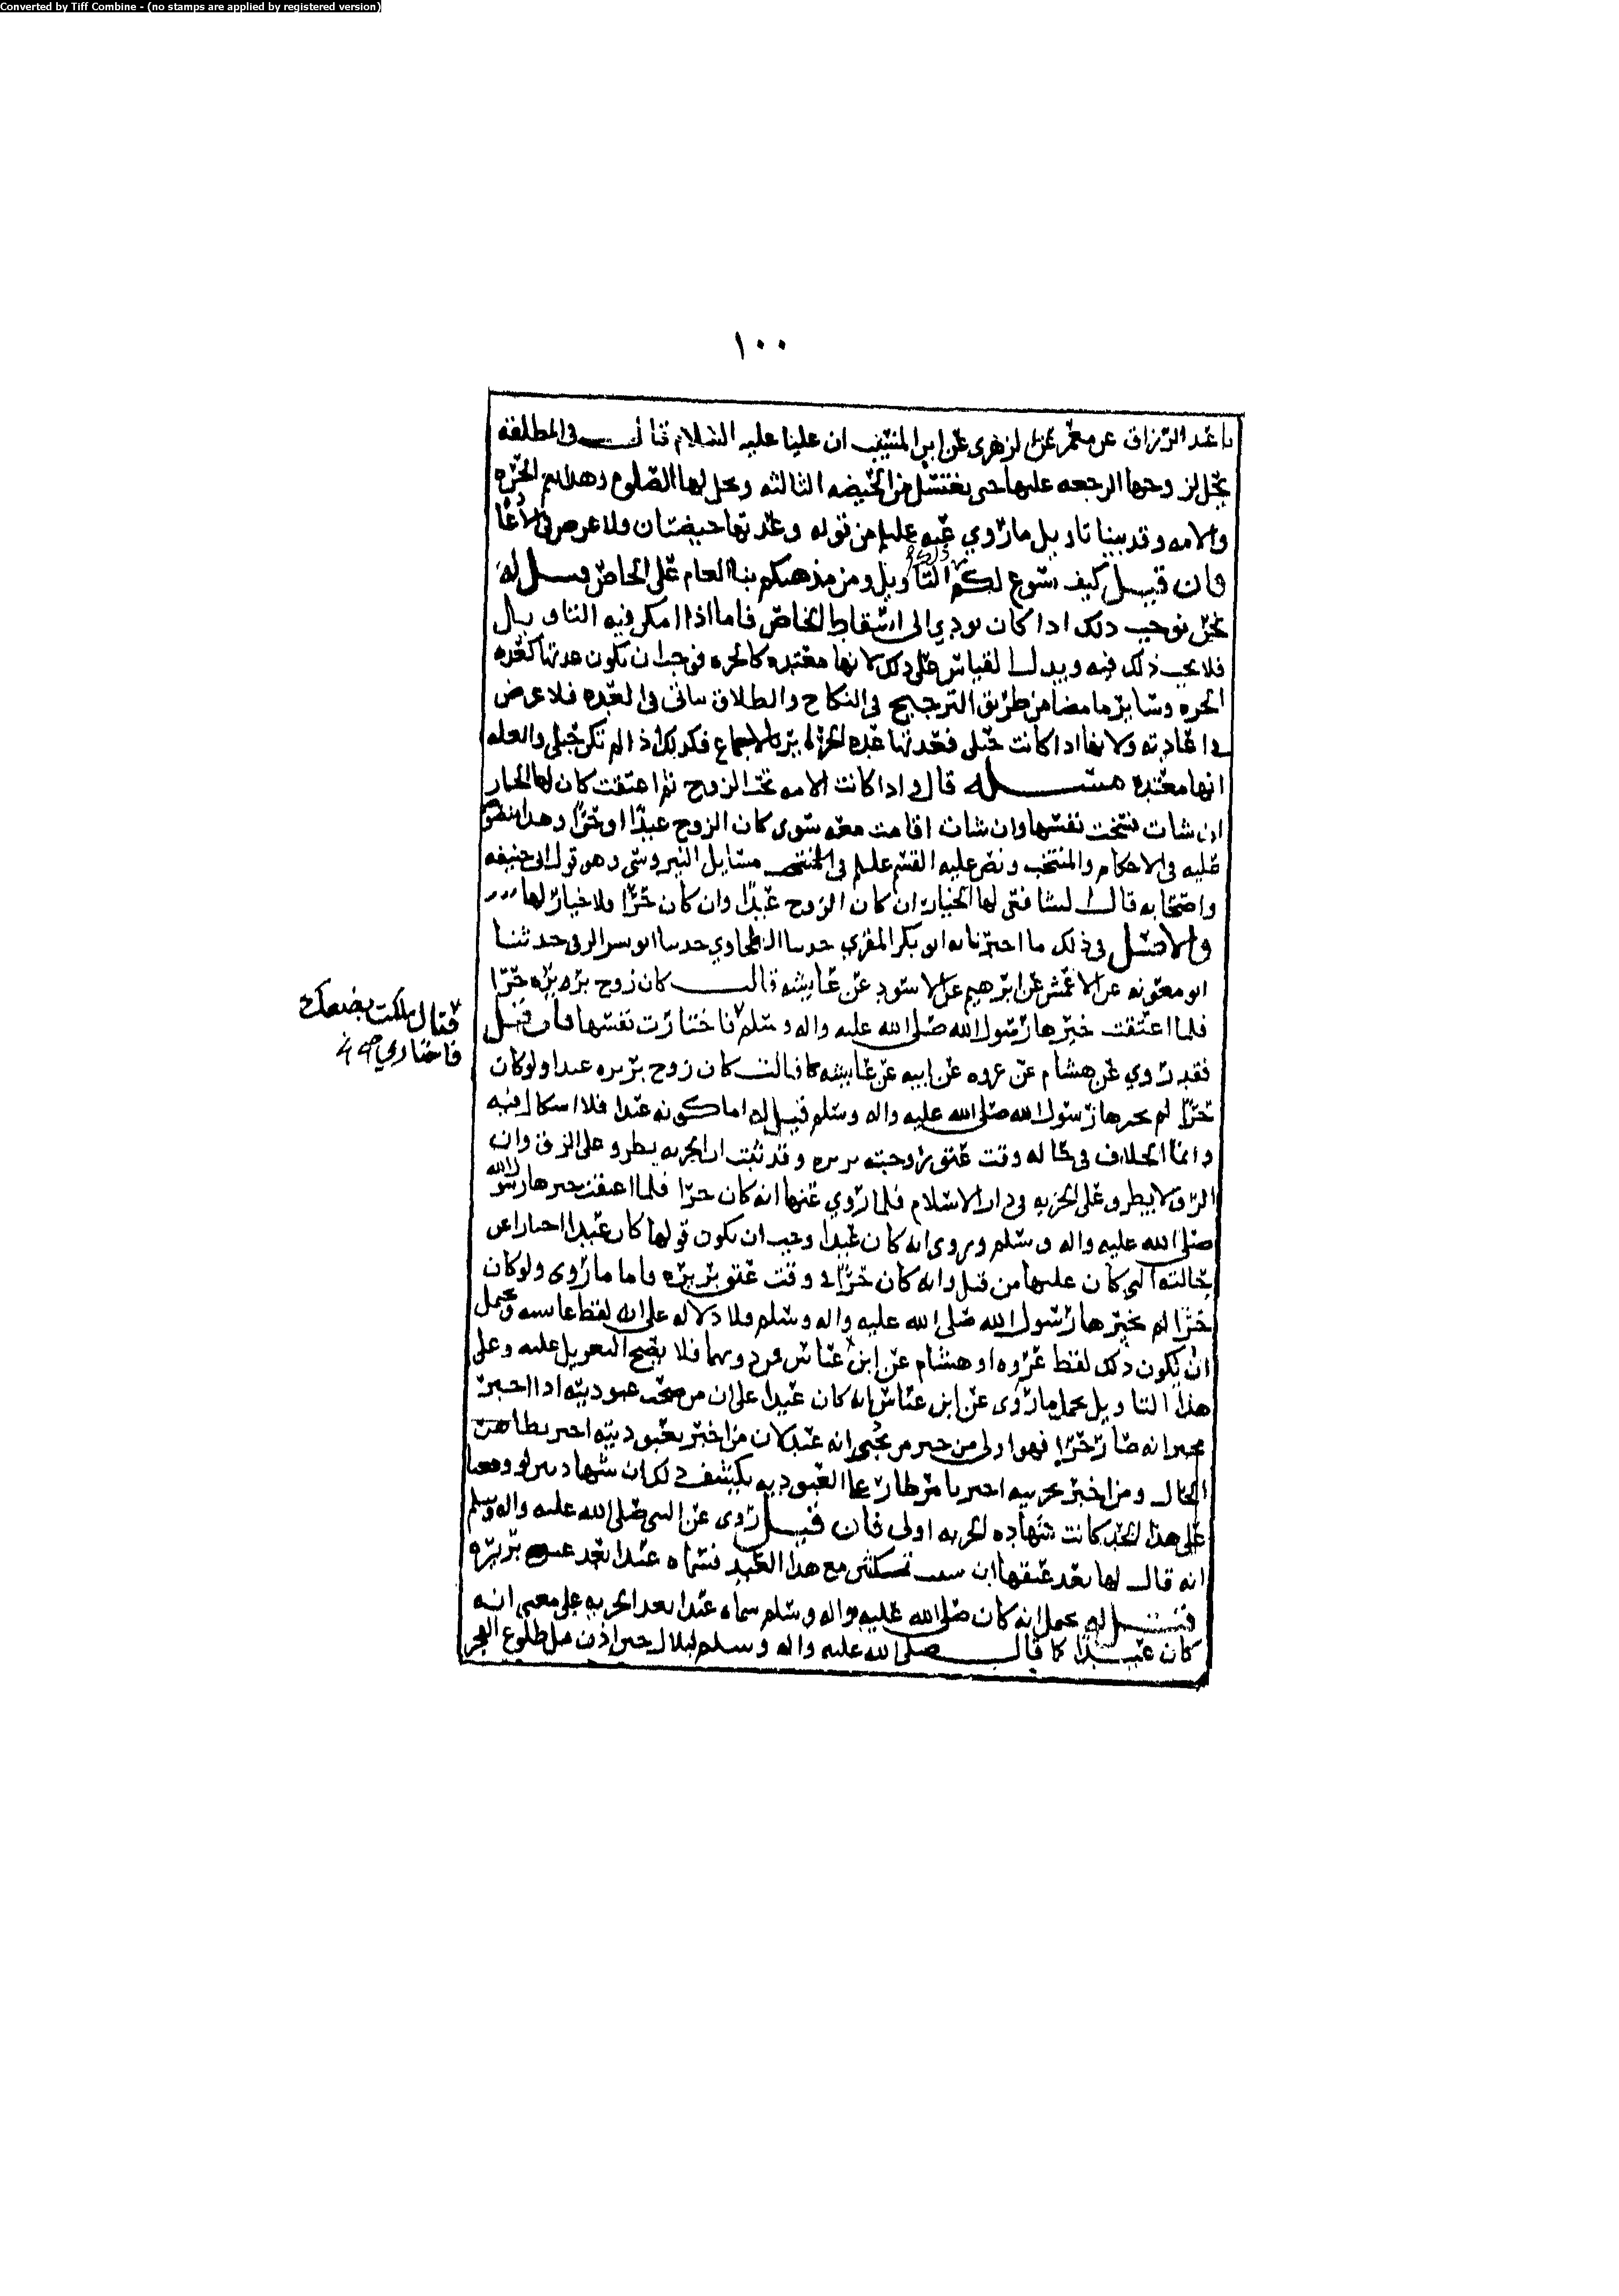 Converted by Tiff Combine - (no stamps are applied by registered version)
١٠٠
نا عبد الرزاق عن معمر عن الزهري عن ابن المسيب ان عليا عليه السلام قال في المطلقه
تحل لزوجها الرجعه عليها حتى تغتسل من الحيضه الثالثه وتحل لها الصلوه وهذا يعم الحره
والامه وقد بينا تاويل ما روي عنه عليلم من قوله وعدتها حيضتان ولا عرض في الاعاده
فان قيل كيف تسوغ لكم ذلك التاويل ومن مذهبكم بنا العام على الخاص قيل له
نحن نوجب ذلك اذا كان يودي الى اسقاط الخاص فاما اذا امكن فيه التاويل
فلا يجب ذلك فيه ويدل القياس على ذلك لانها معتده كالحره فوجب ان تكون عدتها كعده
الحره وساير ما مضا من طريق الترجيح في النكاح والطلاق ساتى في العده فلا عرض
في اعادته ولانها اذا كانت حبلى فعدتها عده الحراير بالاجماع فكذلك اذا لم تكن حبلى والعله
انها معتده مسله قال واذا كانت الامه تحت الزوج ثم اعتقت كان لها الخيار
ان شات فسخت نفسها وان شات اقامت معه سوى كان الزوج عبدا او حرا وهذا منصوص
عليه في الاحكام والمنتخب ونص عليه القسم عليلم في مسايل النيروسي وهو قول ابي حنيفه
واصحابه قال الشافعي لها الخيار ان كان الزوج عبدا وان كان حرا فلا خيار لها
والاصل في ذلك ما اخبرنا به ابو بكر المقري حدثنا الطحاوي حدثنا ابو بشر الرقي حدثنا
ابو معويه عن الاعمش عن ابرهيم عن الاسود عن عايشه قالت كان زوج بريره حرا
فلما اعتقت خيرها رسول الله صلى الله عليه واله وسلم فاختارت نفسها فان قيل
فقال ملكت بضعك
فاختاري
فقد روي عن هشام عن عروه عن ابيه عن عايشه قالت كان زوج بريره عبدا ولو كان
حرا لم يخيرها رسول الله صلى الله عليه واله وسلم قيل له اما كونه عبدا فلا اشكال فيه
وانما الخلاف في حاله وقت عتق زوجته بريره وقد ثبت ان الحريه يطرو على الرق وان
الرق لا يطرو على الحريه في دار الاسلام فلما روي عنها انه كان حرا فلما اعتقت خيرها رسول الله
صلى الله عليه واله وسلم وروى انه كان عبدا وجب ان يكون قولها كان عبدا اخبارا عن
حالته التي كان عليها من قبل وانه كان حرا في وقت عتق بريره واما ما روى ولو كان
حرا لم يخيرها رسول الله صلى الله عليه واله وسلم فلا دلاله على انه لفظ عايشه ويحمل
ان يكون ذلك لفظ عروه او هشام عن ابن عباس فلا يصح التعويل عليه وعلى
هذا التاويل يحمل ما روى عن ابن عباس انه كان عبدا على ان من عبوديته اذا اخبر
مخبر انه صار حرا فهو اولى من خبر من انه عبد لان من اخبر بعبوديته اخبر بظاهر
الحال ومن اخبر بحريته اخبر بامر طار على العبوديه يكشف ذلك ان شهادتين لو وقعتا
على هذا الحد كانت شهاده الحريه اولى فان قيل روى عن النبي صلى الله عليه واله وسلم
انه قال لها بعد عتقها ان شئت مع هذا العبد فسماه عبدا بعد عتق بريره
قيل له يحمل انه كان صلى الله عليه واله وسلم سماه عبدا بعد الحريه على معنى انه
كان عبدا كما قال صلى الله عليه واله وسلم لبلال حين اذن قبل طلوع الفجر